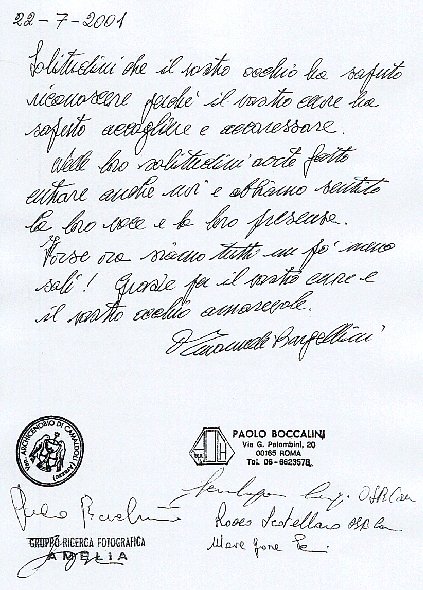 22-7-2001
Solitudini che il vostro occhio ha saputo
riconoscere perché il vostro cuore ha
saputo accogliere e accarezzare.
Nelle loro solitudini avete fatto
entrare anche noi e abbiamo sentito
la loro voce e la loro presenza.
Forse ora siamo tutti un po' meno
soli! Grazie per il vostro cuore e
il vostro occhio amorevole.
Emanuele Bargellini
ARCICENOBIO DI CAMALDOLI
PAOLO BOCCALINI
Via G. Palombini, 20
00165 ROMA
Tel. 06-6623578
OSB Cam
OSB Cam
GRUPPO RICERCA FOTOGRAFICA
AMELIA